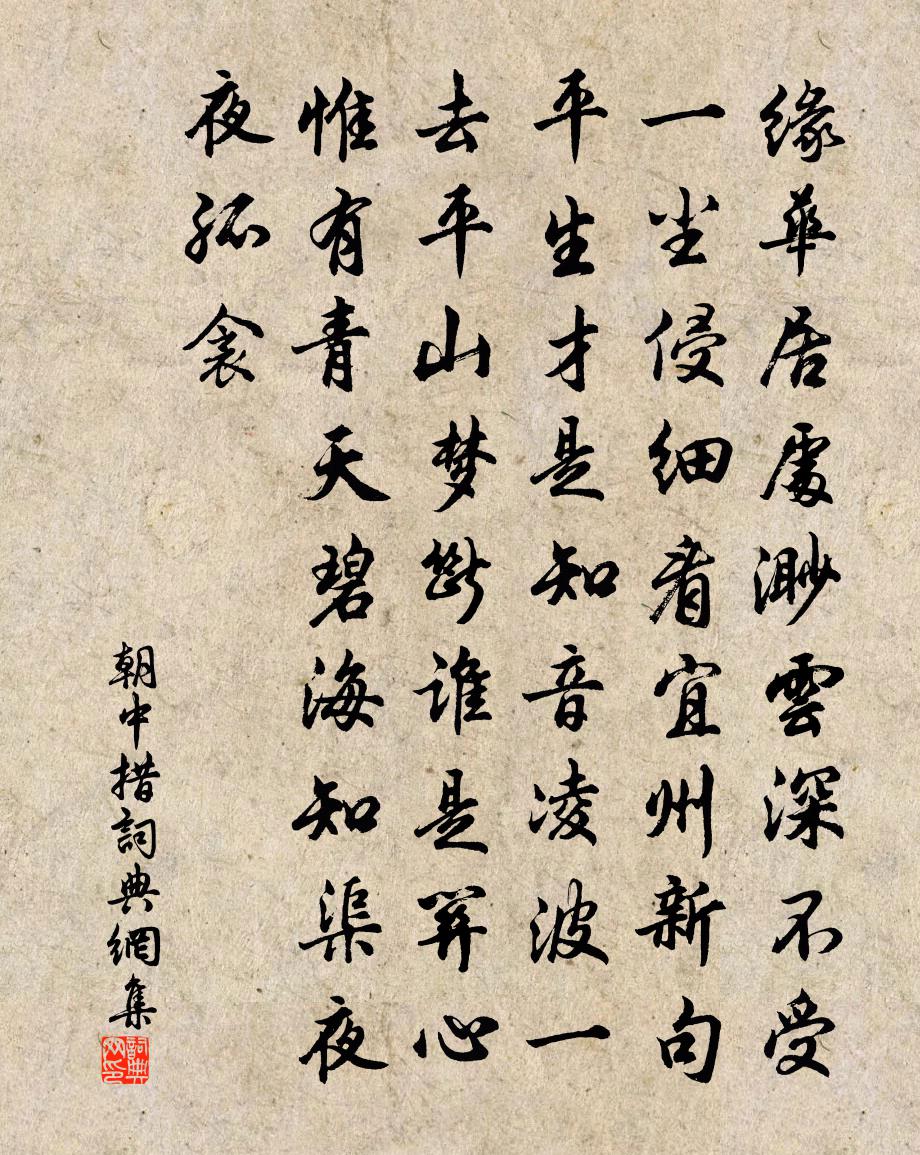 缘華居處渺雲深不受
一尘侵細看宜州新句
平生才是知音凌波一
去平山梦断谁是关心
惟有青天碧海知渠夜
夜孤衾
朝中措詞典網集
詞典网印